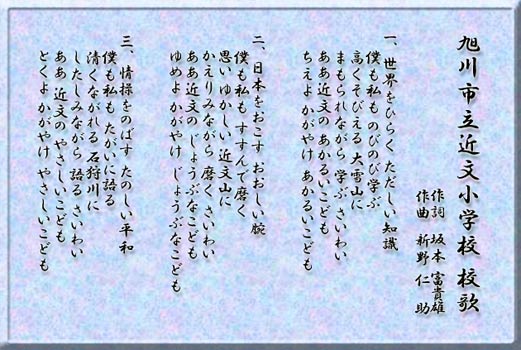 旭川市立近文小学校 校歌
作詞 坂本 富貴雄
作曲 新野 仁助
一、世界をひらく ただしい知識
僕も私も のびのび学ぶ
高くそびえる 大雪山に
まもられながら 学ぶ さいわい
ああ近文の あかるいこども
ちえよ かがやけ あかるいこども
二、日本をおこす おおしい腕
僕も私も すすんで磨く
思いゆかしい 近文山に
かえりみながら 磨く さいわい
ああ近文の じょうぶなこども
ゆめよ かがやけ じょうぶなこども
三、情操をのばす たのしい平和
僕も私も たがいに語る
清くながれる 石狩川に
したしみながら 語る さいわい
ああ 近文の やさしいこども
とくよ かがやけ やさしいこども